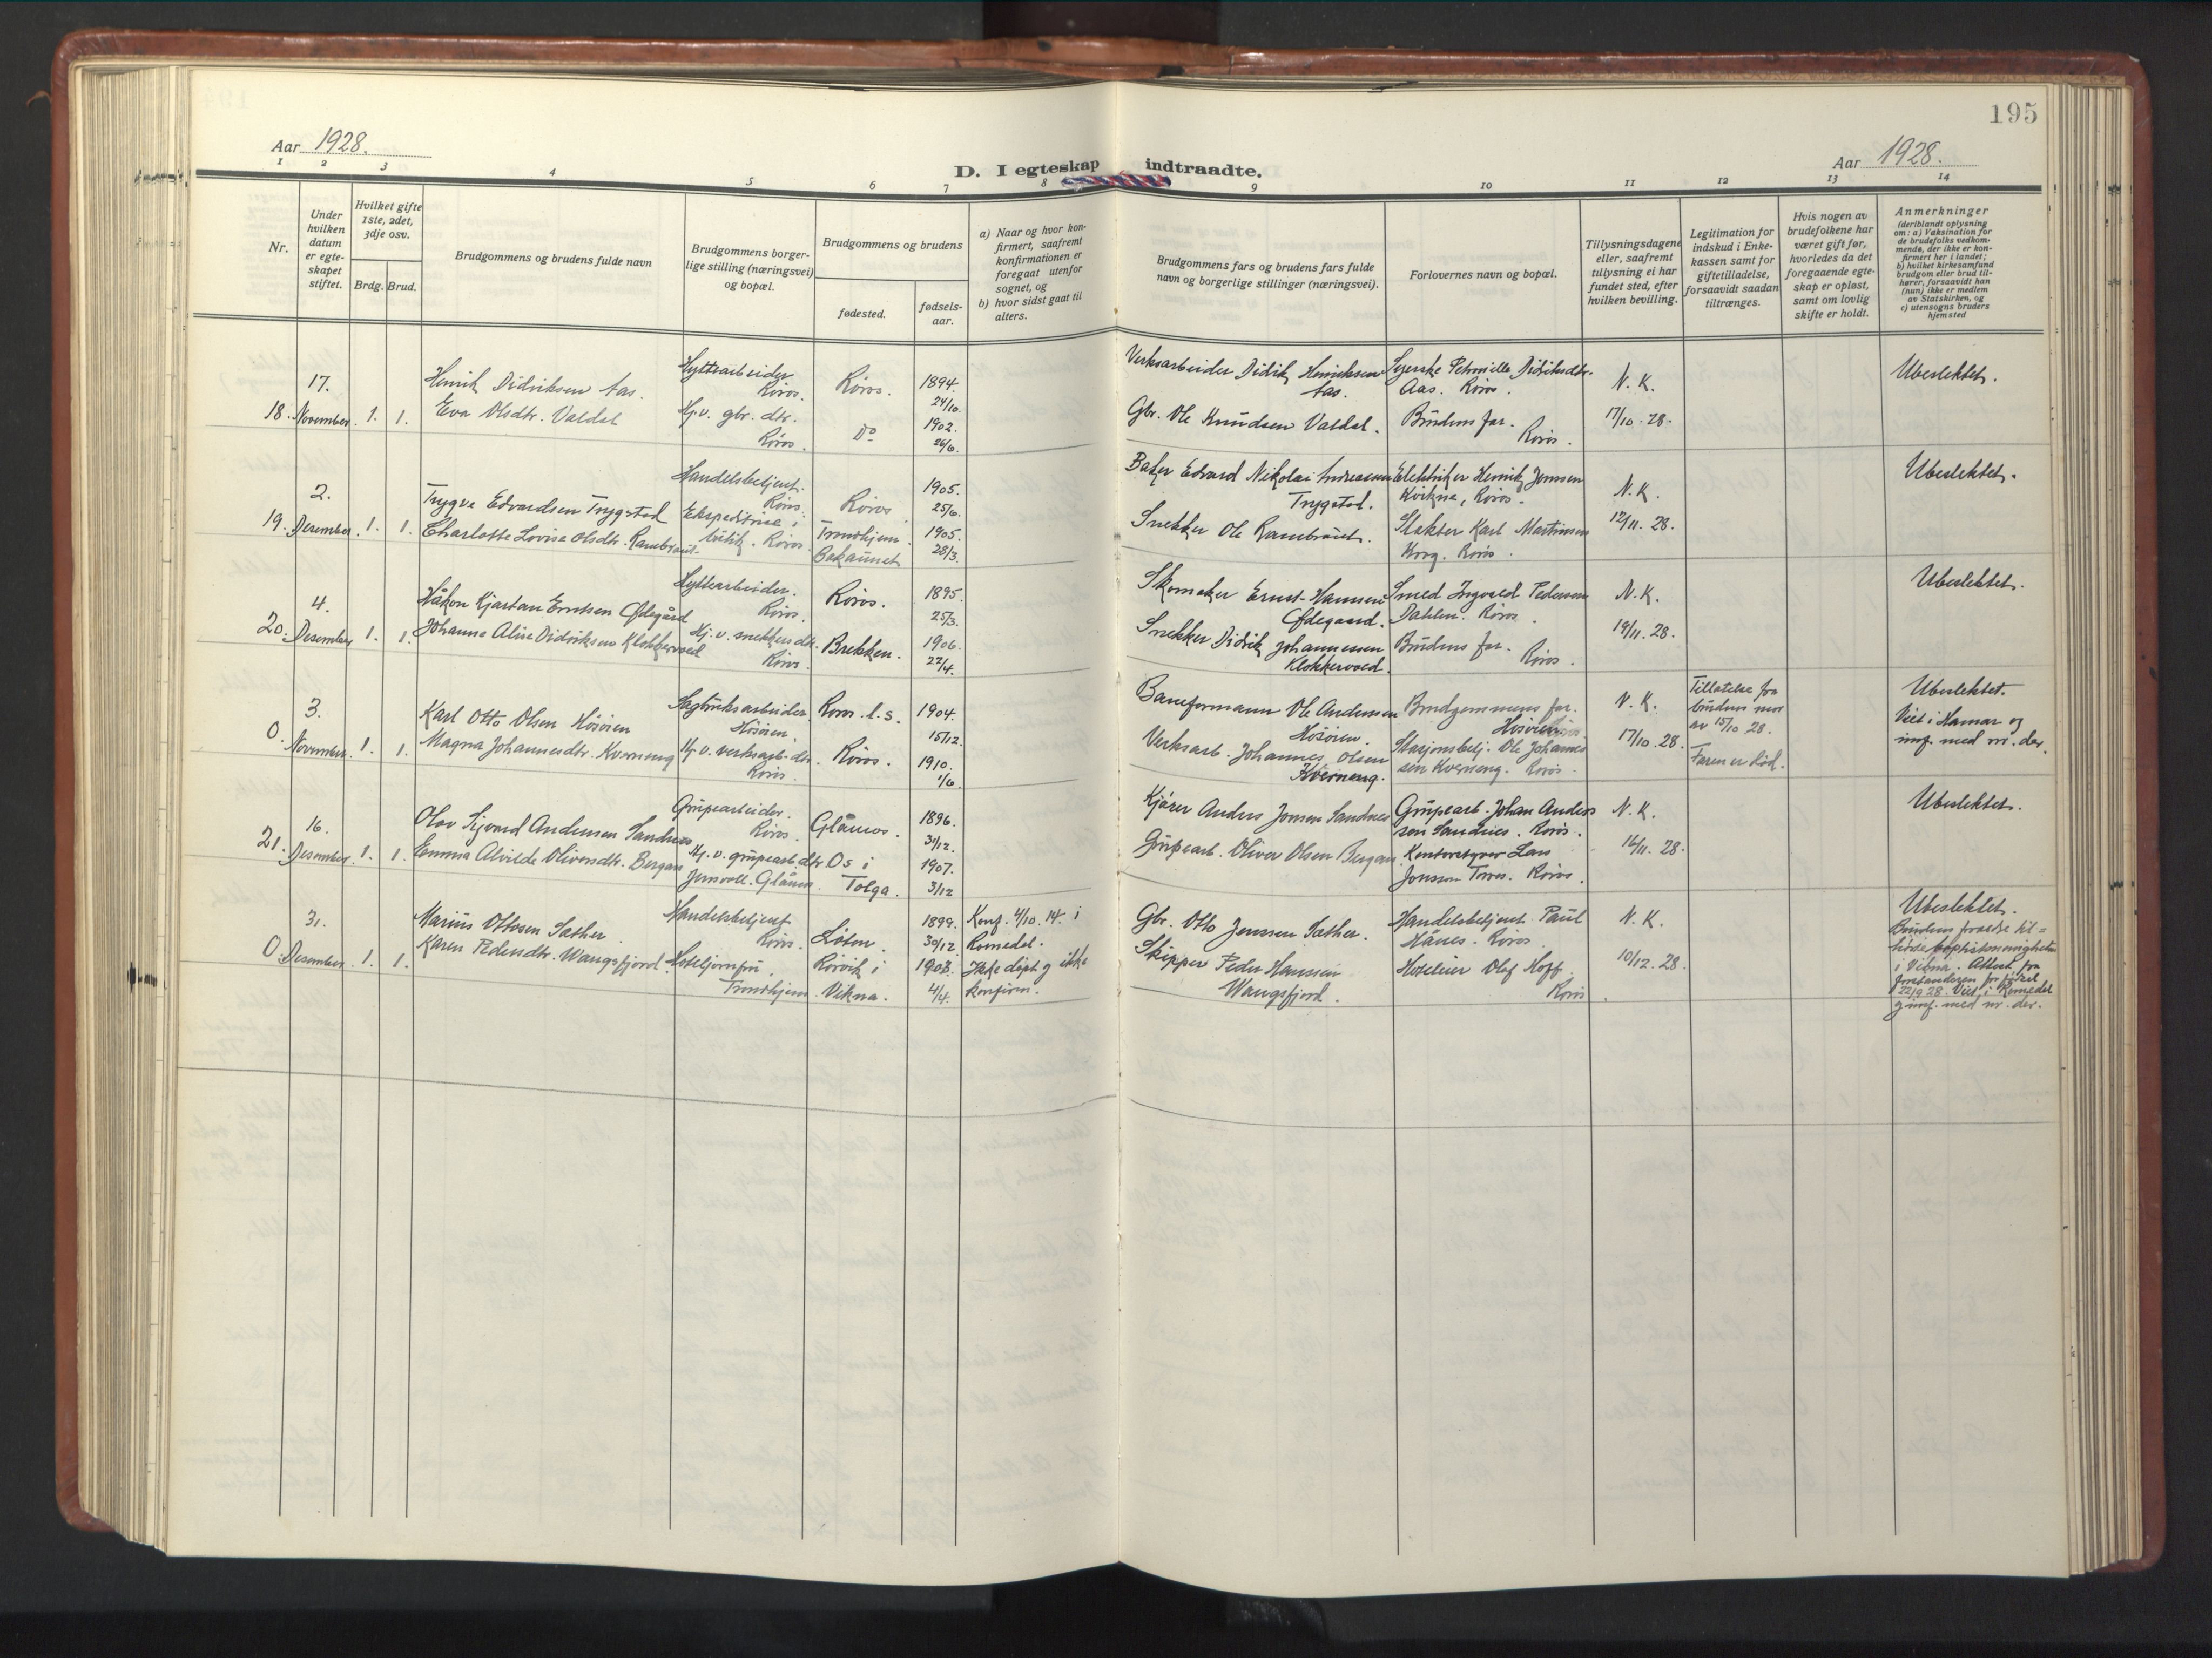 195
Aar 1928.
D. I egteskap indtraadte.
Aar 1928.
1 2 3 4 5 6 7 8 9 10 11 12 13 14
Nr.
Under hvilken datum er egte-skapet stiftet.
Hvilket gifte 1ste, 2det, 3dje osv.
Brdg. Brud.
Brudgommens og brudens fulde navn
Brudgommens borger-lige stilling (næringsvei) og bopæl.
Brudgommens og brudens
fødested.
fødsels-aar.
a) Naar og hvor kon-firmert, saafremt konfirmationen er foregaat utenfor sognet, og
b) hvor sidst gaat til alters.
Brudgommens fars og brudens fars fulde navn og borgerlige stillinger (næringsvei).
Forlovernes navn og bopæl.
Tillysningsdagene eller, saafremt tillysning ei har fundet sted, efter hvilken bevilling.
Legitimation for indskud i Enke-kassen samt for giftetilladelse, forsaavidt saadan tiltrænges.
Hvis nogen av brudefolkene har været gift før, hvorledes da det foregaaende egte-skap er opløst, samt om lovlig skifte er holdt.
Anmerkninger
(deriblandt oplysning om: a) Vaksination for de brudefolks vedkom-mende, der ikke er kon-firmert her i landet; b) hvilket kirkesamfund brudgom eller brud til-hører, forsaavidt han (hun) ikke er medlem av Statskirken, og c) utensogns bruders hjemsted
18. 17. November. 1. 1.
Henrik Didriksen Aas.
Eva Olsdtr. Valdal
Hyttearbeider
Røros.
Hj. v. gbr. dtr.
Røros.
Røros.
Do
1894.
24/10.
1902.
26/6.
Verksarbeider Didrik Henriksen
Aas.
Gbr. Ole Knudsen Valdal.
Syerske Petronille Didriksdtr.
Aas. Røros.
Brudens far.
Røros.
N. K.
17/10. 28.
Ubeslektet.
19. 2. Desember. 1. 1.
Trygve Edvardsen Trygstad
Charlotte Lovise Olsdtr. Rambraut.
Handelsbetjent.
Røros.
Ekspeditrise i
butik. Røros.
Røros
Trondhjem.
Bakaunet
1905.
25/6.
1905.
28/3.
Baker Edvard Nikolai Andreassen
Trygstad.
Snekker Ole Rambraut.
Elektriker Henrik Jonsen
Kvikne, Røros.
Slakter Karl Martinsen
Krog. Røros.
N. K.
12/11. 28.
Ubeslektet.
20. 4. Desember 1. 1.
Håkon Kjartan Ernstsen Ødegård
Johanna Alise Didriksen Klokkervoll
Hyttearbeider.
Røros.
Hj. v. snekkers dtr.
Røros.
Røros.
Brekken.
1895.
25/3.
1906.
22/4.
Skomaker Ernst Hansen
Ødegaard.
Snekker Didrik Johannessen
Klokkervold.
Smed Ingvald Pedersen
Dahlen. Røros.
Brudens far.
Røros.
N. K.
19/11. 28.
Ubeslektet.
0. 3. November. 1. 1.
Karl Otto Olsen Høsøien
Magna Johannesdtr. Kverneng
Sagbruksarbeider
Høsøien.
Hj. v. verksarb. dtr.
Røros.
Røros l. s.
Røros.
1904.
15/12.
1910.
1/6.
Baneformann Ole Anderssen
Høsøien.
Verksarb. Johannes Olsen
Kverneng.
Brudgommens far.
Høsøien
Stasjonsbetj. Ole Johannes
sen Kverneng. Røros.
N. K.
17/10. 28.
Tillatelse fra
brudens mor
av 15/10 28.
Faren er død.
Ubeslektet.
Viet i Hamar og
innf. med nr. der.
21. 16. Desember. 1. 1.
Olav Sigvard Andersen Sandnes
Emma Alvilde Oliversdtr. Bergan
Grubearbeider.
Røros.
Hj. v. grubearb. dtr.
Jensvoll. Glåmos.
Glåmos.
Os i
Tolga.
1896.
31/12.
1907.
3/12
Kjører Anders Jonsen Sandnes
Grubearb. Oliver Olsen Bergan
Grubearb. Johan Anders
sen Sandnes. Røros.
Kontorstyrer Lars
Jonsson Torres. Røros.
N. K.
16/11. 28.
Ubeslektet.
0. 31. Desember 1. 1.
Marius Ottosen Sæther.
Karen Pedersdtr. Wangsfjord
Handelsbetjent
Røros.
Hotelljomfru,
Trondhjem.
Løten.
Rørvik i
Vikna.
1899.
30/12.
1903.
4/4.
Konf. 4/10. 14. i
Romedal.
Ikke døpt og ikke
konfirm.
Gbr. Otto Jenssen Sæther.
Skipper Peder Hanssen
Wangsfjord.
Handelsbetjent Paul
Hånes. Røros.
Hotelleier Olaf Hoff.
Røros.
N. K.
10/12. 28.
Ubeslektet.
Brudens foreldre til-
hørte baptistmenigheten
i Vikna. Attest fra
forstanderen for fødsel
22/9 28. Viet i Romedal
og innf. med nr. der.